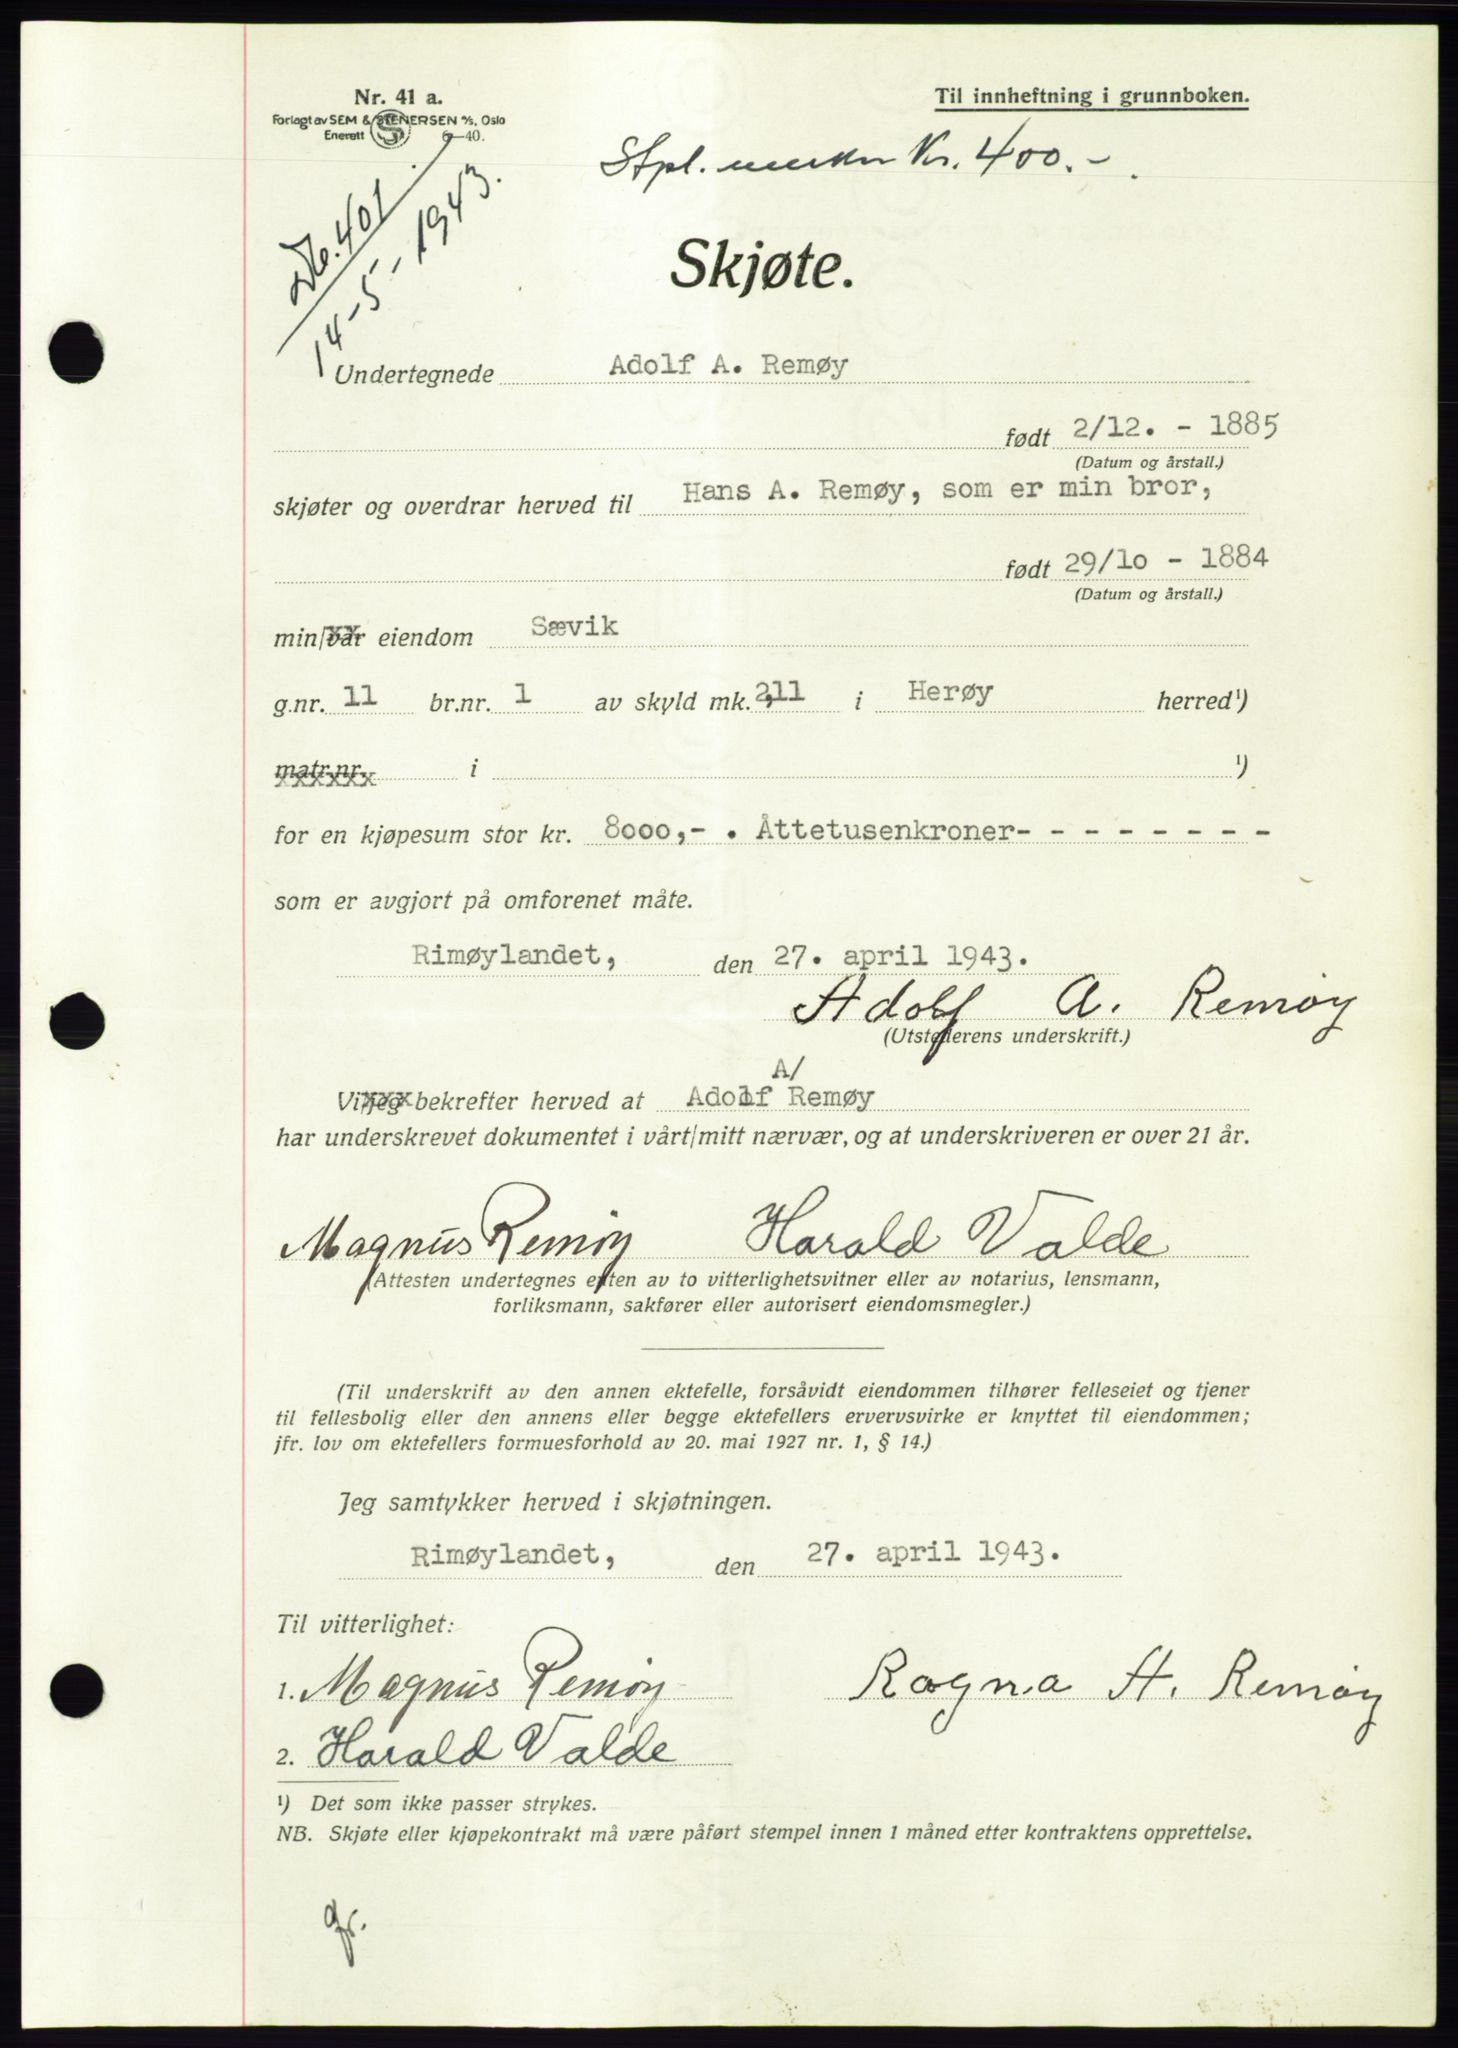 Nr. 41 a.
Forlagt av SEM & STENERSEN A/S, Oslo
Enerett S 6—40.
Til innheftning i grunnboken.
Stpl. merker Kr. 400.-
No. 401
14-5-1943.
Skjøte.
Undertegnede Adolf A. Remøy
født 2/12. - 1885
(Datum og årstall.)
skjøter og overdrar herved til Hans A. Remøy, som er min bror,
født 29/10 - 1884
(Datum og årstall.)
min/vår eiendom Sævik
g.nr. 11 br.nr. 1 av skyld mk. 2,11 i Herøy herred ¹)
matr.nr. i ¹)
for en kjøpesum stor kr. 8000,- . Åttetusenkroner- - - - - - - - -
som er avgjort på omforenet måte.
Rimøylandet, den 27. april 1943.
Adolf A. Remøy
(Utstederens underskrift.)
A/
Vi/jeg bekrefter herved at Adolf Remøy
har underskrevet dokumentet i vårt/mitt nærvær, og at underskriveren er over 21 år.
Magnus Remøy Harald Valde
(Attesten undertegnes enten av to vitterlighetsvitner eller av notarius, lensmann,
forliksmann, sakfører eller autorisert eiendomsmegler.)
(Til underskrift av den annen ektefelle, forsåvidt eiendommen tilhører felleseiet og tjener
til fellesbolig eller den annens eller begge ektefellers ervervsvirke er knyttet til eiendommen;
jfr. lov om ektefellers formuesforhold av 20. mai 1927 nr. 1, § 14.)
Jeg samtykker herved i skjøtningen.
Rimøylandet, den 27. april 1943.
Til vitterlighet:
1. Magnus Remøy Ragna A. Remøy
2. Harald Valde
¹) Det som ikke passer strykes.
NB. Skjøte eller kjøpekontrakt må være påført stempel innen 1 måned etter kontraktens opprettelse.
gr.